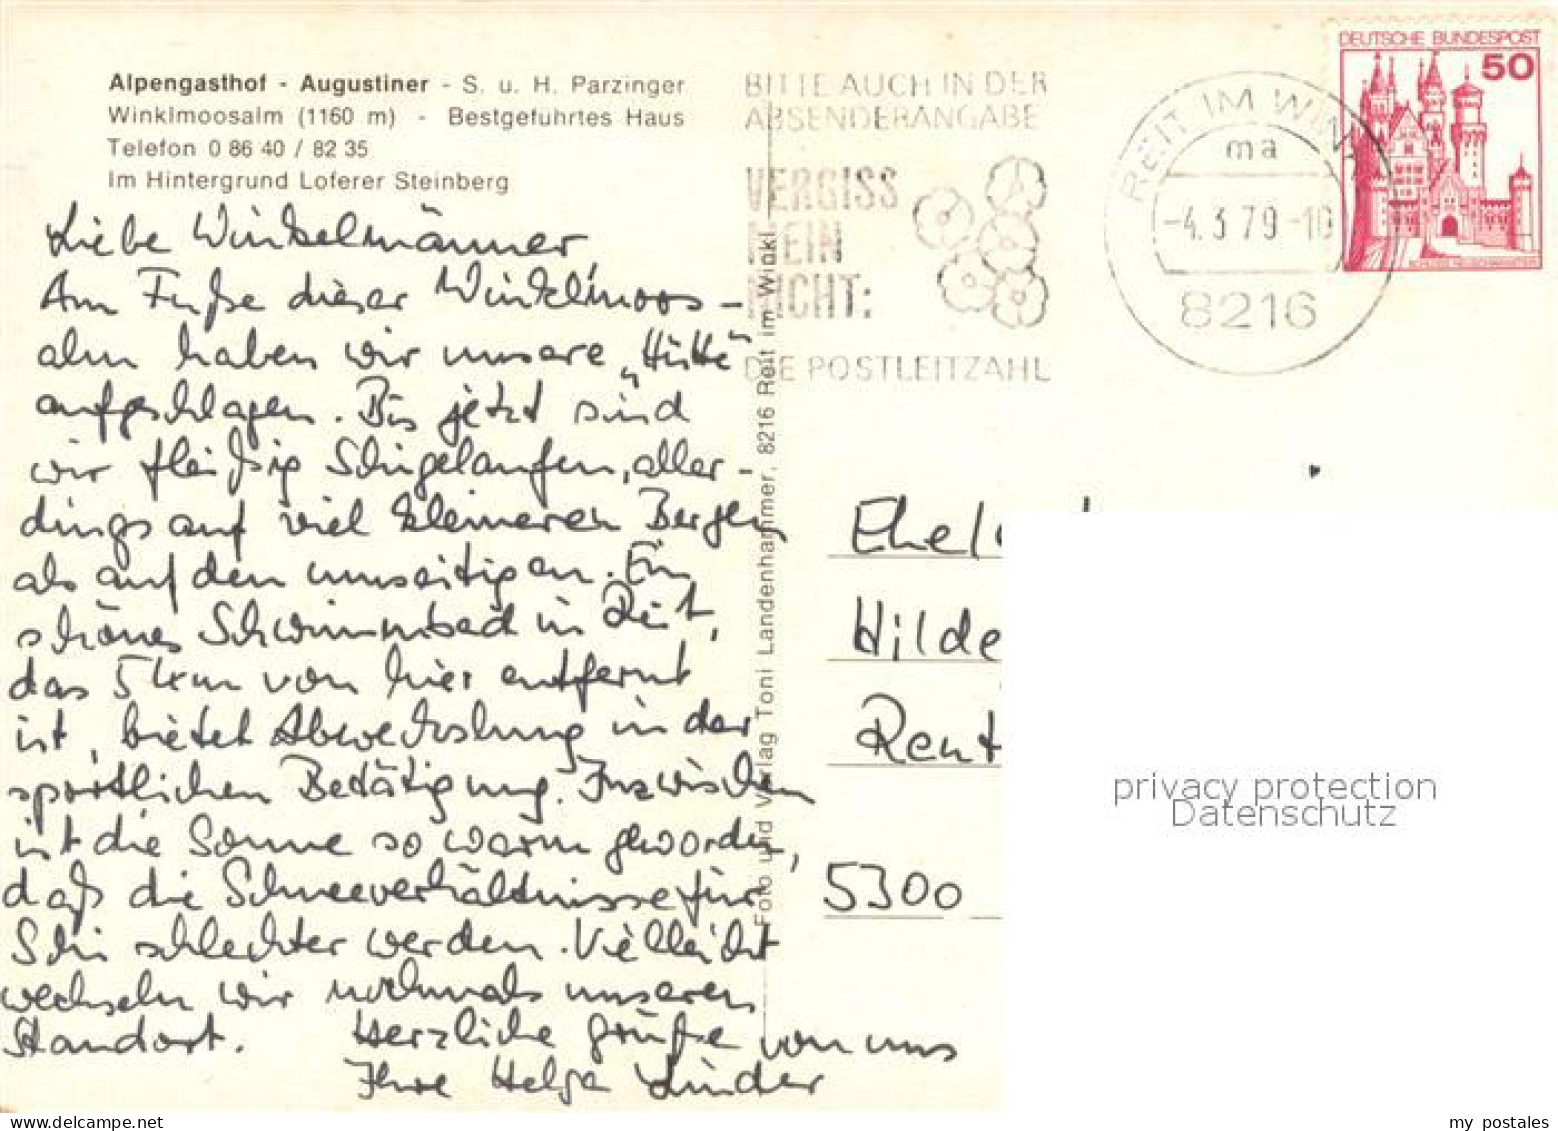 Alpengasthof - Augustiner - S. u. H. Parzinger
Winklmoosalm (1160 m) - Bestgeführtes Haus
Telefon 0 86 40 / 82 35
Im Hintergrund Loferer Steinberg
Liebe Winkelmänner,
Am Fuße dieser Winkelmoos-
alm haben wir unsere "Hütte"
aufgeschlagen. Bis jetzt sind
wir fleißig Schigelaufen, aller-
dings auf viel kleineren Bergen
als auf den umseitigen. Ein
schönes Schwimmbad in Reit,
das 5 km von hier entfernt
ist, bietet Abwechslung in der
sportlichen Betätigung. Inzwischen
ist die Sonne so warm geworden,
daß die Schneeverhältnisse für
Schi schlechter werden. Vielleicht
wechseln wir nochmals unseren
Standort. Herzliche Grüße von uns
Ihre Helga Linder
Foto und Verlag Toni Landenhammer, 8216 Reit im Winkl
BITTE AUCH IN DER
ABSENDERANGABE
VERGISS
MEIN
NICHT:
DIE POSTLEITZAHL
REIT IM WINKL
ma
-4.3.79-10
8216
DEUTSCHE BUNDESPOST
50
SCHLOSS NEUSCHWANSTEIN
Hilde
Rent
5300
privacy protection
Datenschutz
my postales